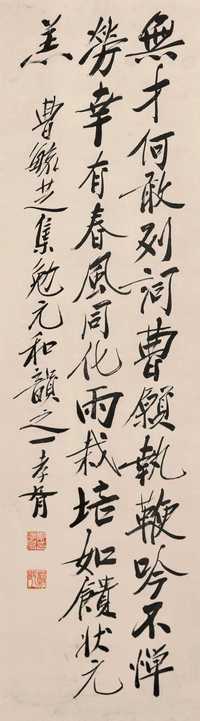 無才何敢列詞曹願執鞭吟不憚
勞幸有春風同化雨栽培如饋狀元
羔
曹毓芝集勉元和韻之一孝胥